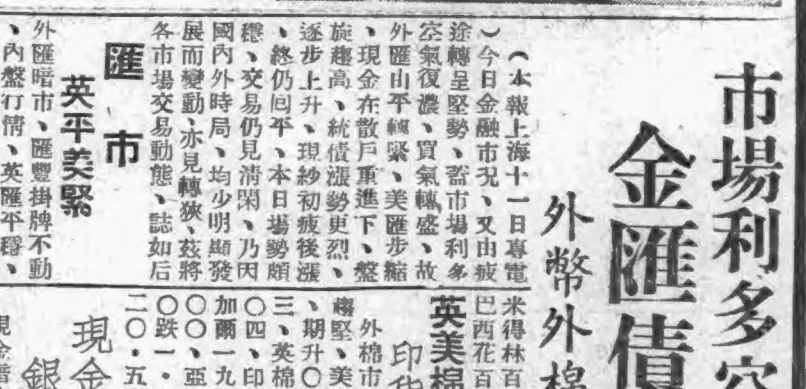 市場利多空
金匯債
外幣外棉
（本報上海十一日專電
）今日金融市况、又由疲
途轉呈堅勢、蓋市場利多
空氣復濃、買氣轉盛、故
外匯山平轉緊、美匯步縮
、現金在散戶重進下、盤
旋趨高、統債漲勢更烈、
逐步上升、現紗初疲後漲
、終仍回平、本日場勢頗
穩、交易仍見清閑、乃因
國內外時局、均少明顯發
展而變動、亦見轉狹、茲將
各市場交易動態、誌如后
匯市
英平美緊
外匯暗市、匯豐掛牌不動
、內盤行情、英匯平穩、
米得林百
巴西花百
英美棉
印花
外棉市
趨堅、美
、期升〇
三、英棉
〇四、印
加爾一九
〇〇、亞
〇跌一・
二〇・五
現金
銀
現金暗